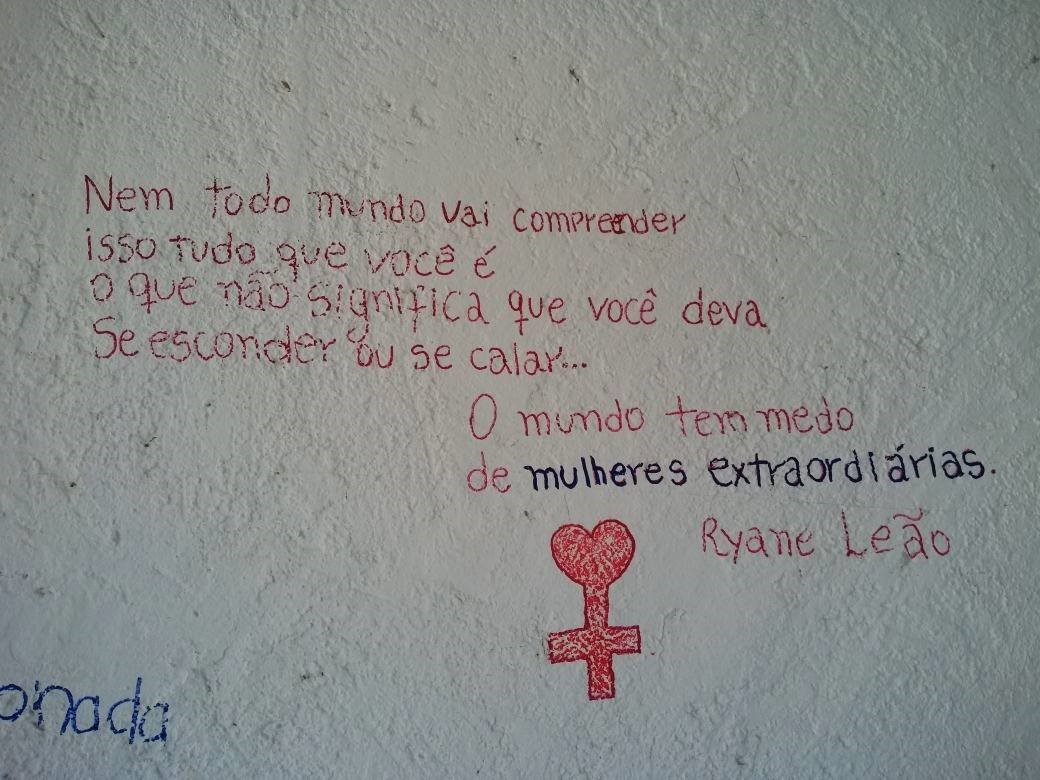 Nem todo mundo vai comprender
isso tudo que você é
o que não significa que você deva
Se esconder ou se calar...
O mundo tem medo
de mulheres extraordiárias.
Ryane Leão
onada